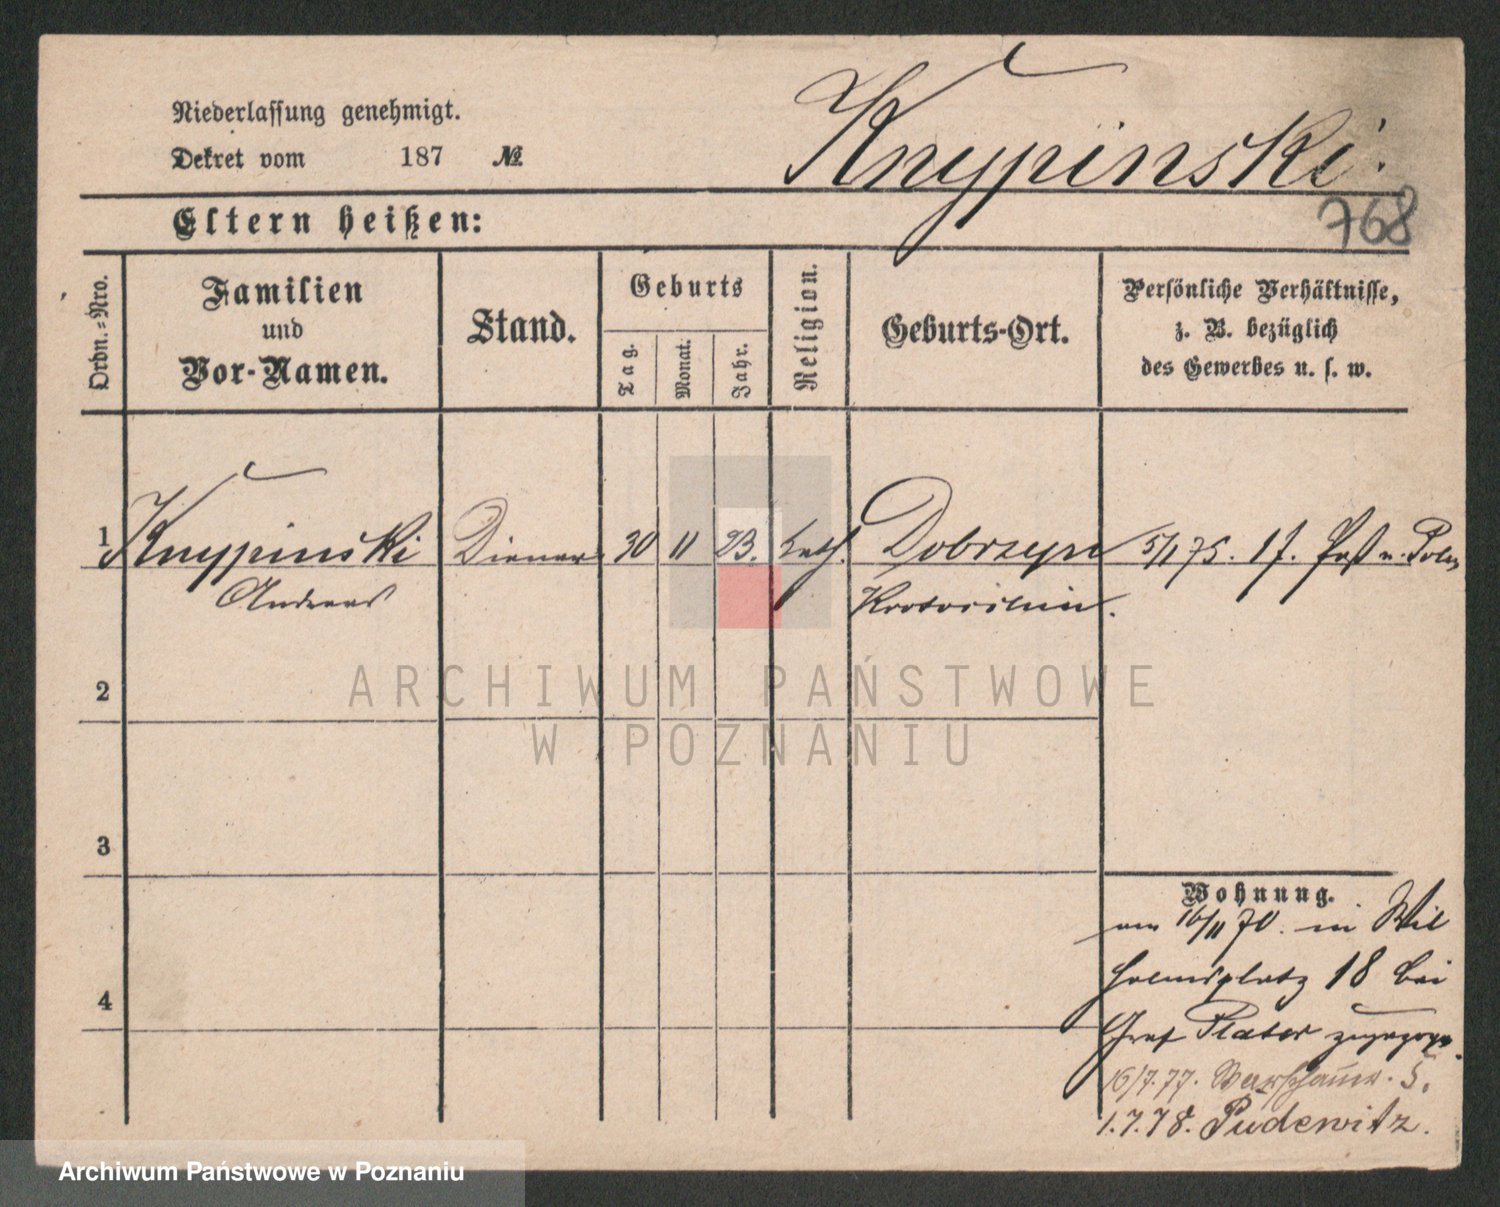 Niederlassung genehmigt.
Dekret vom 187 №
Knypinski.
768
Eltern heißen:
Ordn.=Nro.
Familien
und
Vor-Namen.
Stand.
Geburts
Tag.
Monat.
Jahr.
Religion.
Geburts-Ort.
Persönliche Verhältnisse,
z. B. bezüglich
des Gewerbes u. s. w.
1 Knypinski Diener 30 11 23. kath. Dobrzyce 5/1 75. 17.
Andreas Krotoschin.
2
3
4
Wohnung.
am 16/11 70. in Wil
helmsplatz 18 bei
Graf Plater zugezogen.
16/7. 77. 5.
1.7.78. Pudewitz.
ARCHIWUM PAŃSTWOWE
W POZNANIU
Archiwum Państwowe w Poznaniu